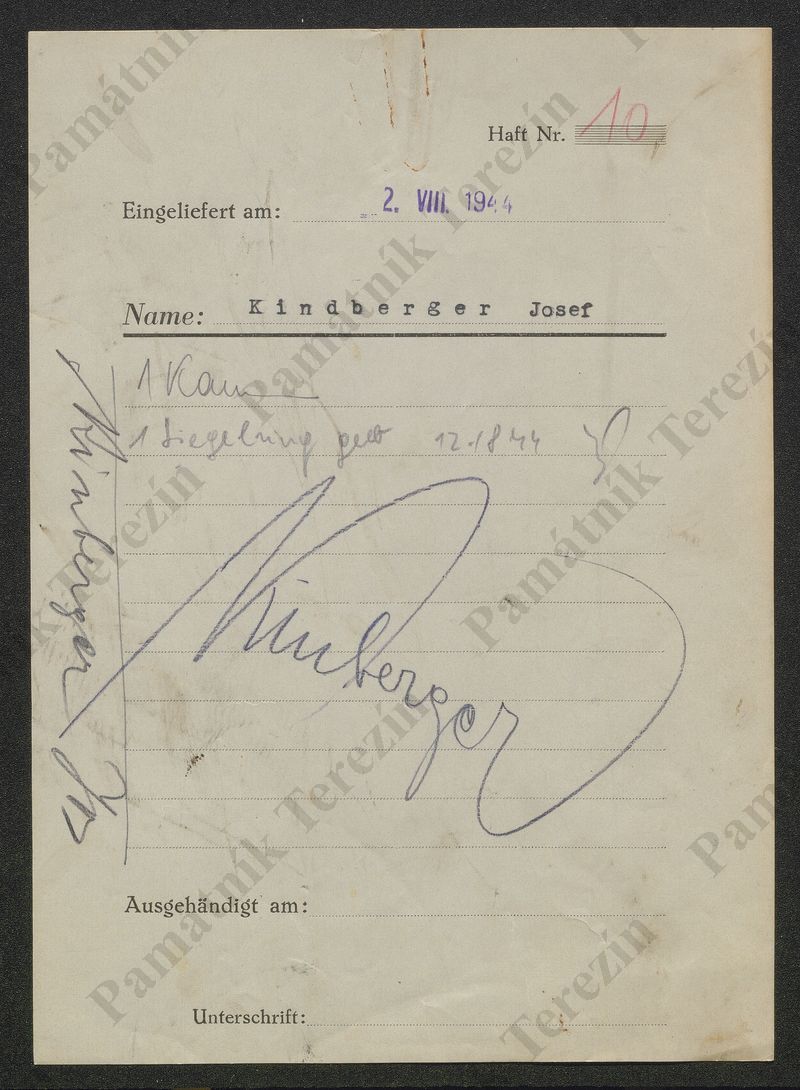 Haft Nr. 10
Eingeliefert am: 2. VIII. 1944
Name: Kindberger Josef
1 Kamm
1 Siegelring gelb 12.18 44
Kinberger
Kinberger
Ausgehändigt am:
Unterschrift:
Památník Terezín